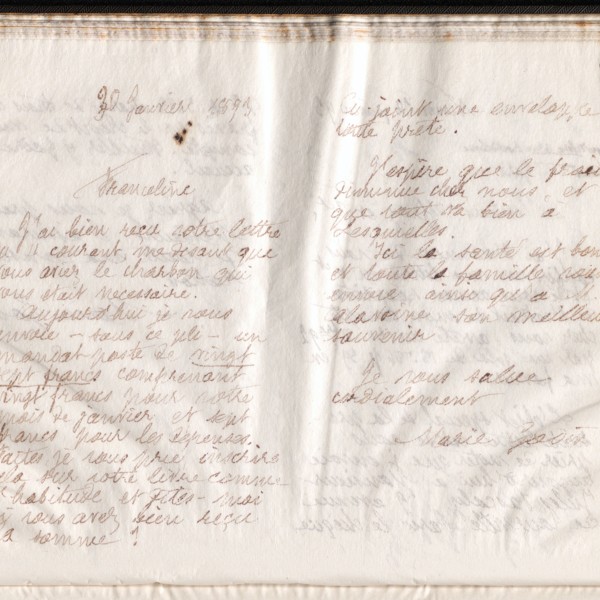 Janvier 1893
Francoline
J'ai bien reçu votre lettre
du 11 courant, me disant que
vous aviez le charbon qui
vous était nécessaire.
Aujourd'hui je vous
envoie - sous ce pli - un
mandat poste de vingt
sept francs comprenant
vingt francs pour votre
mois de janvier et sept
francs pour les
Faites je vous prie inscrire
cela sur votre livre comme
d'habitude et dites-moi
si vous avez bien reçu
la somme ?
Ci-joint une enveloppe
toute prête.
J'espère que le froid
diminue chez vous et
que tout va bien à
Lesquielles.
Ici la santé est bonne
et toute la famille vous
envoie ainsi qu'à
son meilleur
souvenir
Je vous salue
cordialement
Marie